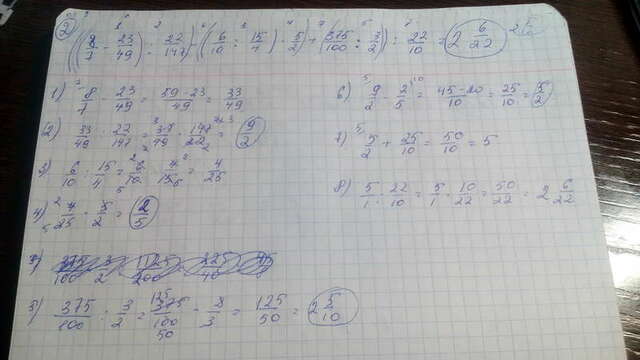 2) ((8/7 - 23/49) : 22/147) - (6/10 : 15/4) · 5/2 + (375/100 : 3/2)) : 22/10 = 2 6/22
1) 8/7 - 23/49 = 59-23/49 = 33/49
2) 33/49 : 22/147 = 33/49 · 147/22 = 9/2
3) 6/10 : 15/4 = 6/10 · 4/15 = 4/25
4) 4/25 · 5/2 = 2/5
5) 375/100 : 3/2 = 375/100 - 8/3 = 125/50 = 2 5/10
6) 9/2 - 2/5 = 45-20/10 = 25/10 = 5/2
7) 5/2 + 25/10 = 50/10 = 5
8) 5/1 : 22/10 = 5/1 · 10/22 = 50/22 = 2 6/22